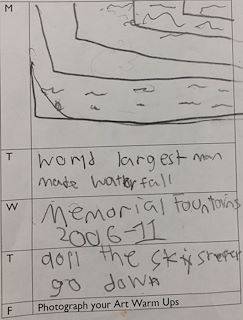 M
T
world largest man
made waterfall
W
Memorial fountains
2006-11
T
all the
go down
F
Photograph your Art Warm Ups